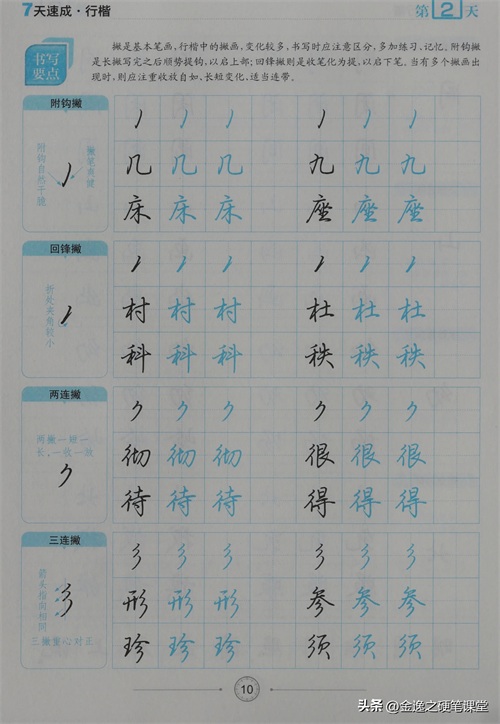 7天速成·行楷
第2天
书写要点
撇是基本笔画,行楷中的撇画,变化较多,书写时应注意区分,多加练习、记忆。附钩撇
是长撇写完之后顺势提钩,以启上部;回锋撇则是收笔化为提,以启下笔。当有多个撇画出
现时,则应注重收放自如、长短变化,适当连带。
附钩撇
撇笔爽健
附钩自然干脆
几几几 九九九
床床床 座座座
回锋撇
折处夹角较小
村村村 杜杜杜
科科科 秩秩秩
两连撇
两撇一短一
长,一收一放
彻彻彻 很很很
待待待 得得得
三连撇
箭头指向相同
三撇重心对正
彡彡彡 彡彡彡
形形形 参参参
珍珍珍 须须须
10
头条 @金逸之硬笔课堂